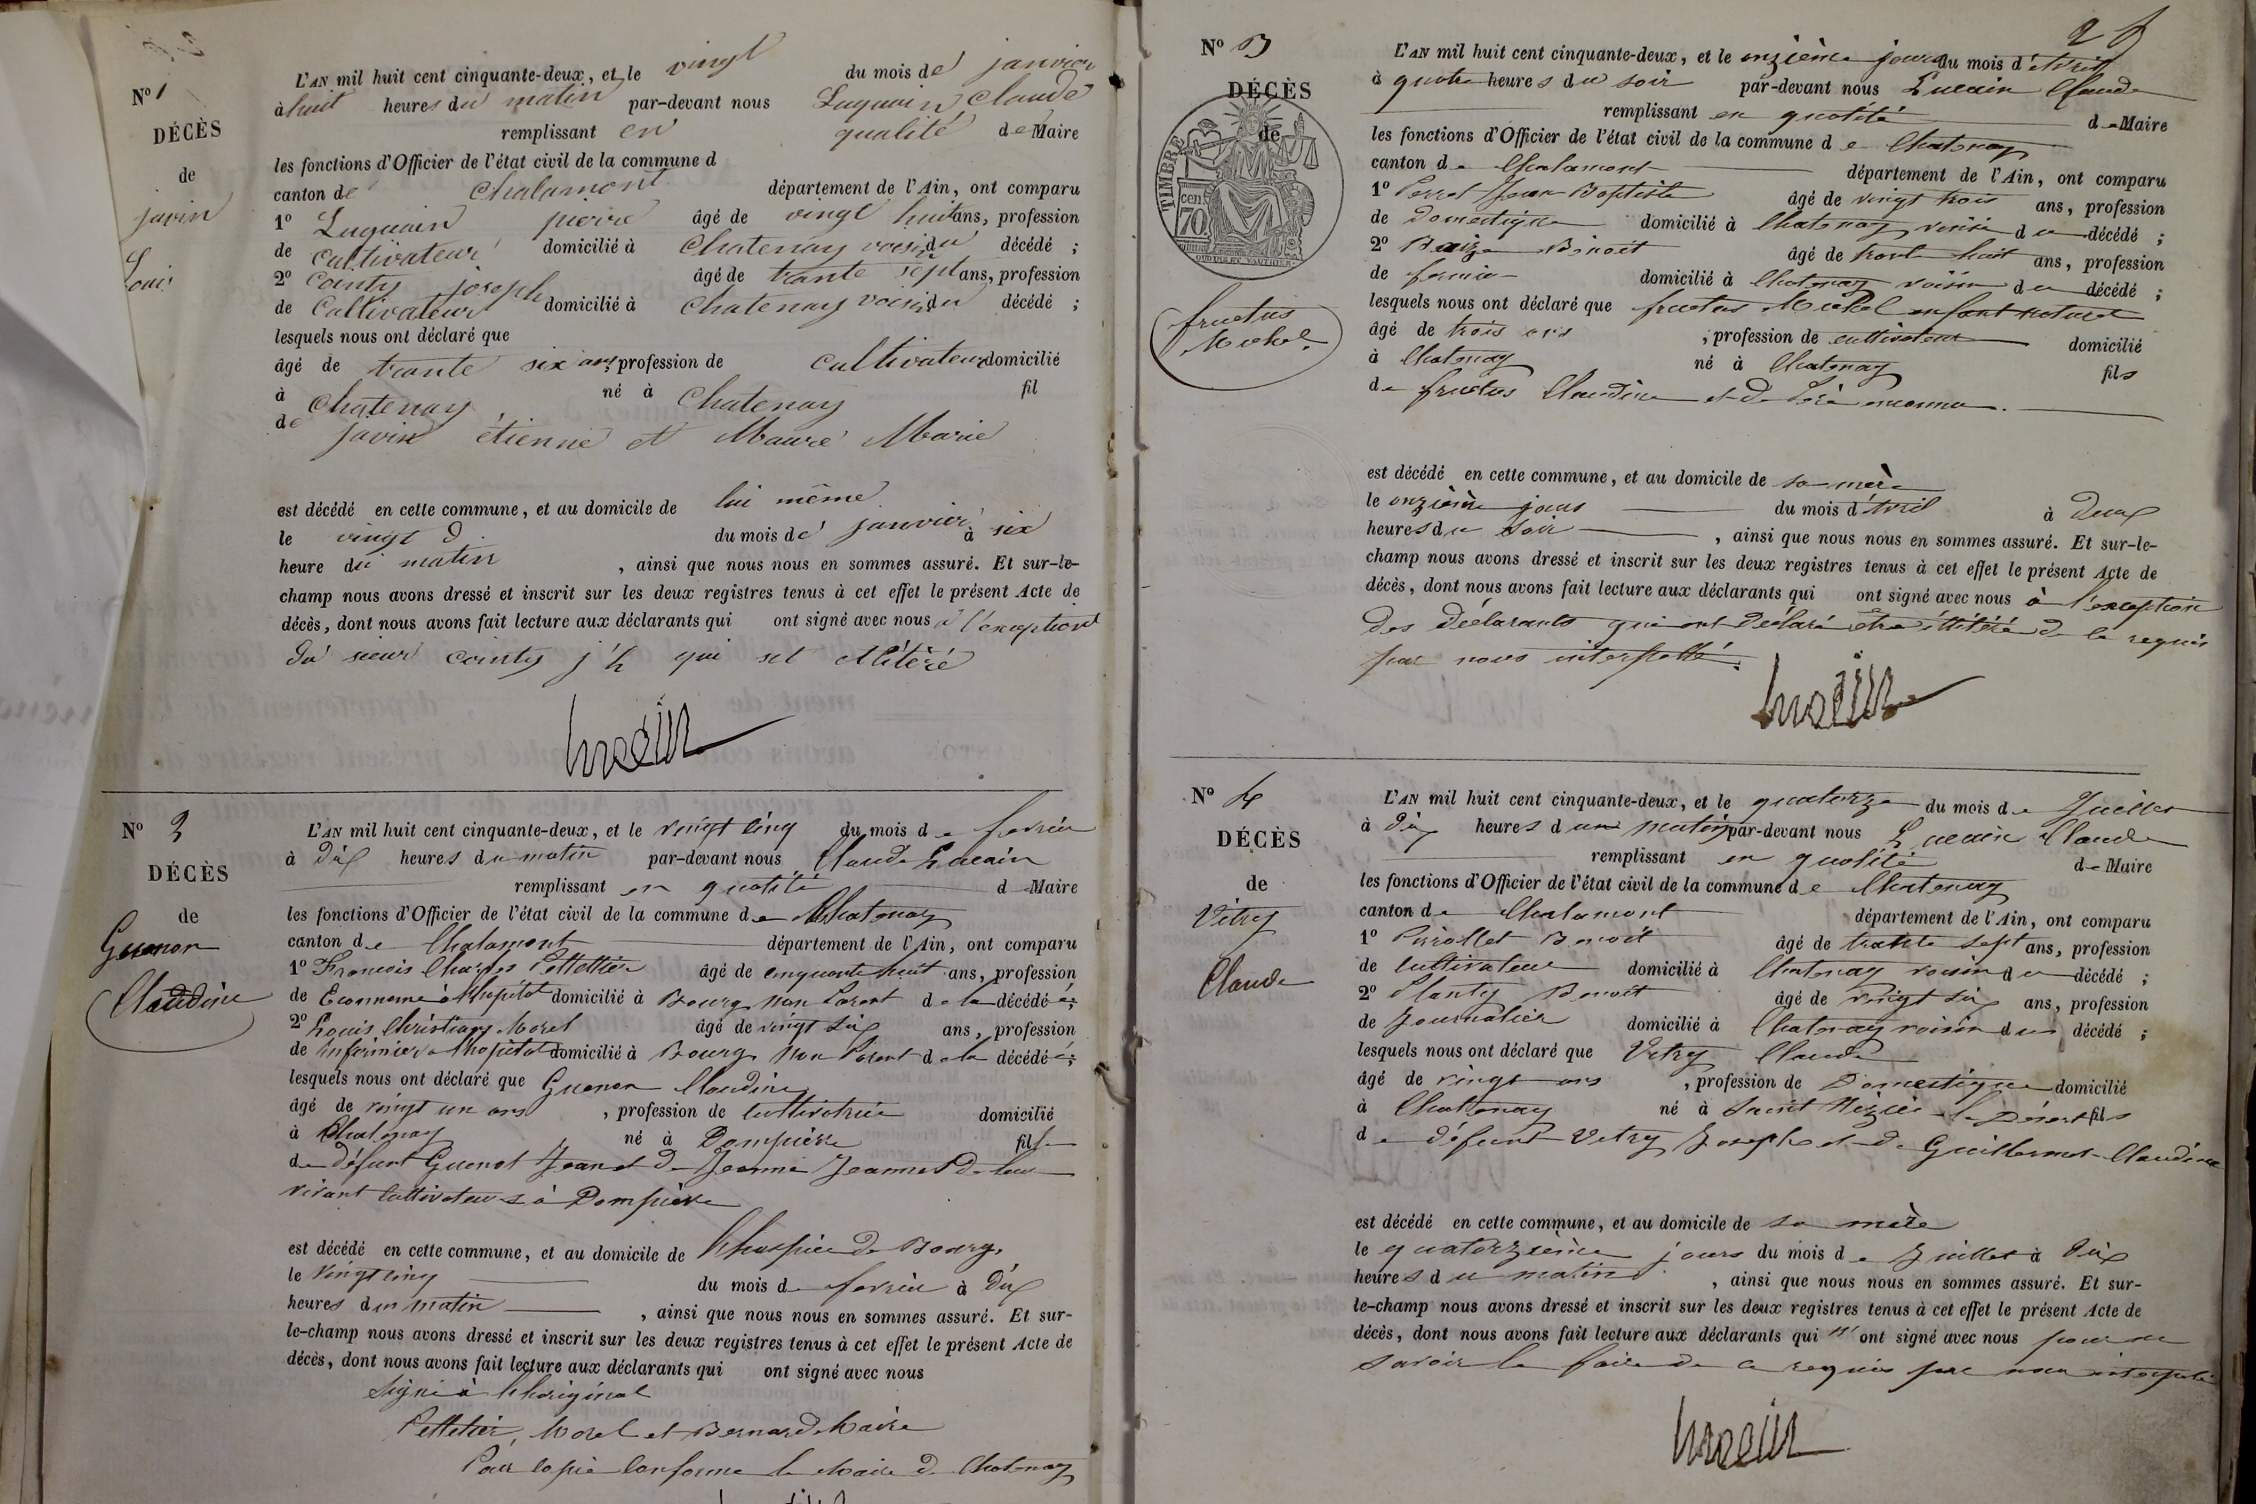 Nº 1
DÉCÈS
de
javin
Louis
L'AN mil huit cent cinquante-deux, et le vingt du mois de janvier
à huit heures du matin par-devant nous Luquain Claude
remplissant en qualité de Maire
les fonctions d'Officier de l'état civil de la commune d
canton de Chalamont département de l'Ain, ont comparu
1º Luquain pierre âgé de vingt huit ans, profession
de cultivateur domicilié à Chatenay voisin du décédé ;
2º Cointy joseph âgé de trante sept ans, profession
de Cultivateur domicilié à Chatenay voisin du décédé ;
lesquels nous ont déclaré que
âgé de trante six ans, profession de cultivateur domicilié
à Chatenay né à Chatenay fil
de javin étienne et Maure Marie
est décédé en cette commune, et au domicile de lui même
le vingt du mois de janvier à six
heure du matin , ainsi que nous nous en sommes assuré. Et sur-le-
champ nous avons dressé et inscrit sur les deux registres tenus à cet effet le présent Acte de
décès, dont nous avons fait lecture aux déclarants qui ont signé avec nous à l'exception
du sieur cointy j'h qui set
Nº 2
DÉCÈS
de
Guenon
Claudine
L'AN mil huit cent cinquante-deux, et le vingt cinq du mois de fevrier
à Dix heures du matin par-devant nous Claude Lucain
remplissant en qualité d Maire
les fonctions d'Officier de l'état civil de la commune de Chatenay
canton de Chalamont département de l'Ain, ont comparu
1º Francois Charles Pellettier âgé de cinquante huit ans, profession
de Econnome à l'hopital domicilié à Bourg non Parent de la décédé é;
2º Louis Christiany Morel âgé de vingt Six ans, profession
de Infirmier a l'hopital domicilié à Bourg Non Parent de la décédé é;
lesquels nous ont déclaré que Guenon Claudine
âgé de vingt un ans , profession de cultivatrice domicilié
à Chatenay né à Dompierre fille
de défunt Guenot Jean et De Jeanne Jeannet De leur
vivant Cultivateurs à Dompierre
est décédé en cette commune, et au domicile de L'hospice de Bourg
le Vingt cinq du mois de fevrier à Dix
heures du matin , ainsi que nous nous en sommes assuré. Et sur-
le-champ nous avons dressé et inscrit sur les deux registres tenus à cet effet le présent Acte de
décès, dont nous avons fait lecture aux déclarants qui ont signé avec nous
Signé à L'horiginal
Pelletier, Morel et Bernard Maire
Pour Copie Conforme le Maire de Chatenay
Nº 3
DÉCÈS
de
TIMBRE
70
cen.
fructus
Michel
L'AN mil huit cent cinquante-deux, et le onzième jour du mois d'Avril
à quatre heures du soir par-devant nous Lucain Claude
remplissant en qualité de Maire
les fonctions d'Officier de l'état civil de la commune de Chatenay
canton de Chalamont département de l'Ain, ont comparu
1º Perret Jean Baptiste âgé de vingt trois ans, profession
de Domestique domicilié à Chatenay voisin du décédé ;
2º Benoit âgé de trente huit ans, profession
de fermier domicilié à Chatenay voisin du décédé ;
lesquels nous ont déclaré que fructus Michel enfant naturel
âgé de trois ans , profession de cultivateur domicilié
à Chatenay né à Chatenay fils
de fructus Claudine et de Père inconnu.
est décédé en cette commune, et au domicile de sa mère
le onzième jours du mois d'Avril à Deux
heures du Soir , ainsi que nous nous en sommes assuré. Et sur-le-
champ nous avons dressé et inscrit sur les deux registres tenus à cet effet le présent Acte de
décès, dont nous avons fait lecture aux déclarants qui ont signé avec nous à l'exception
Des Déclarants qui ont Déclaré être illitéré de le requis
par nous interpellé.
Nº 4
DÉCÈS
de
Vitry
Claude
L'AN mil huit cent cinquante-deux, et le quatorze du mois de Juillet
à Dix heures du matin par-devant nous Lucain Claude
remplissant en qualité de Maire
les fonctions d'Officier de l'état civil de la commune de Chatenay
canton de Chalamont département de l'Ain, ont comparu
1º Pirollet Benoit âgé de trante sept ans, profession
de Cultivateur domicilié à Chatenay voisin du décédé ;
2º Planty Benoit âgé de Vingt Six ans, profession
de Journalier domicilié à Chatenay voisin du décédé ;
lesquels nous ont déclaré que Vitry Claude
âgé de vingt ans , profession de Domestique domicilié
à Chatenay né à Saint Nizier le Désert fils
de défunt Vitry Joseph et de Guillermet Claudine
est décédé en cette commune, et au domicile de sa mère
le quatorzième jours du mois de Juillet à Dix
heures du matin , ainsi que nous nous en sommes assuré. Et sur-
le-champ nous avons dressé et inscrit sur les deux registres tenus à cet effet le présent Acte de
décès, dont nous avons fait lecture aux déclarants qui n'ont signé avec nous pour ne
Savoir le faire de ce requis par nous interpellé